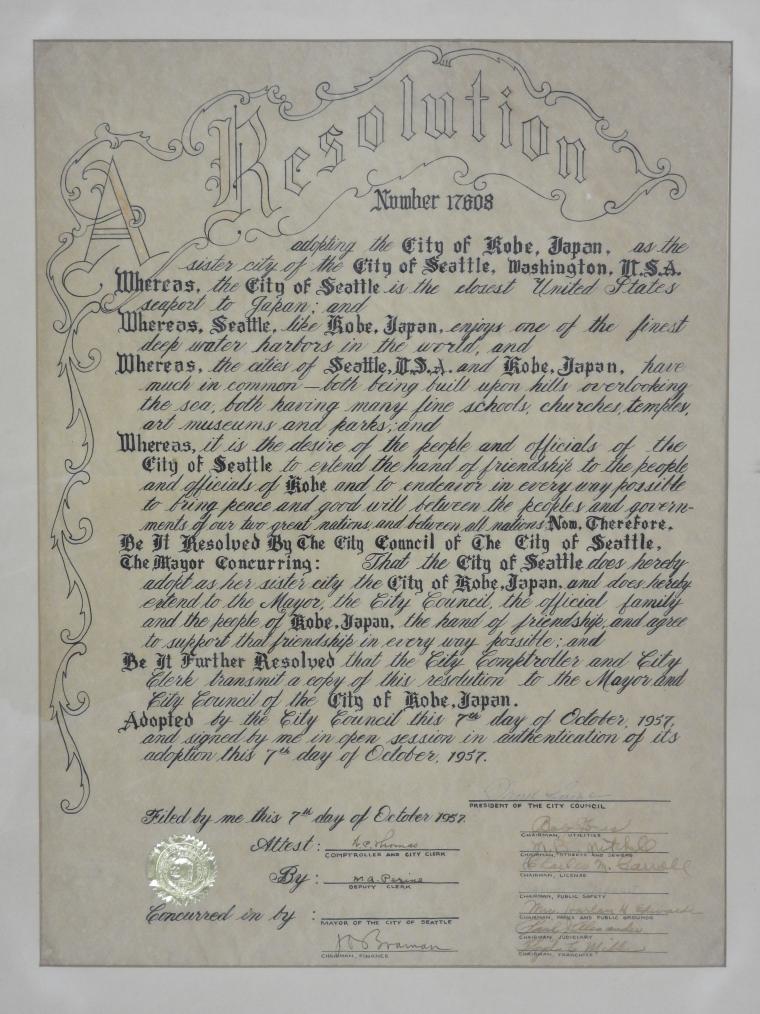 A Resolution
Number 17608
adopting the City of Kobe, Japan, as the
sister city of the City of Seattle, Washington, U.S.A.
Whereas, the City of Seattle is the closest United States
seaport to Japan; and
Whereas, Seattle, like Kobe, Japan, enjoys one of the finest
deep water harbors in the world, and
Whereas, the cities of Seattle, U.S.A. and Kobe, Japan, have
much in common—both being built upon hills overlooking
the sea, both having many fine schools, churches, temples,
art museums and parks; and
Whereas, it is the desire of the people and officials of the
City of Seattle to extend the hand of friendship to the people
and officials of Kobe and to endeavor in every way possible
to bring peace and good will between the peoples and govern-
ments of our two great nations, and between all nations Now, Therefore,
Be It Resolved By The City Council of The City of Seattle,
The Mayor Concurring: That the City of Seattle does hereby
adopt as her sister city the City of Kobe, Japan, and does hereby
extend to the Mayor, the City Council, the official family
and the people of Kobe, Japan, the hand of friendship, and agree
to support that friendship in every way possible; and
Be It Further Resolved that the City Comptroller and City
Clerk transmit a copy of this resolution to the Mayor and
City Council of the City of Kobe, Japan.
Adopted by the City Council this 7th day of October, 1957,
and signed by me in open session in authentication of its
adoption this 7th day of October, 1957.
PRESIDENT OF THE CITY COUNCIL
Filed by me this 7th day of October 1957.
Attest: W.C. Thomas
COMPTROLLER AND CITY CLERK
By: M.A. Perine
DEPUTY CLERK
Concurred in by:
MAYOR OF THE CITY OF SEATTLE
J D Braman
CHAIRMAN, FINANCE
CHAIRMAN, UTILITIES
Mitchell
CHAIRMAN, STREETS AND SEWERS
Charles M. Carroll
CHAIRMAN, LICENSE
CHAIRMAN, PUBLIC SAFETY
Mrs. Harlan H. Edwards
CHAIRMAN, PARKS AND PUBLIC GROUNDS
Alexander
CHAIRMAN, JUDICIARY
CHAIRMAN, FRANCHISE